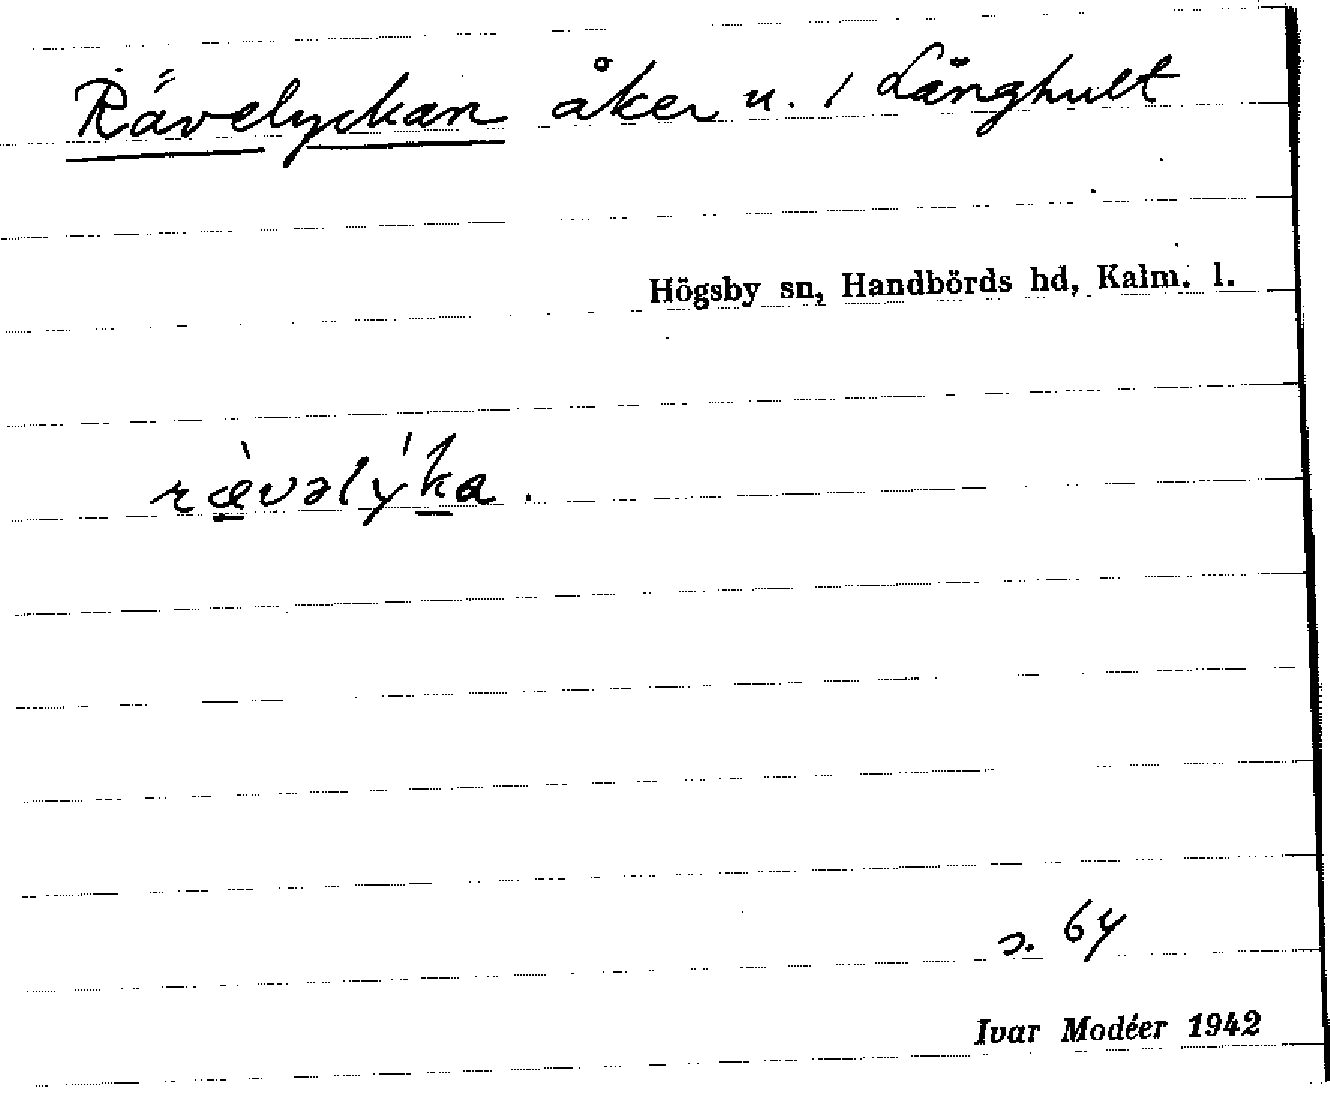 Rävelyckan åker u. / Långhult
Högsby sn, Handbörds hd, Kalm. l.
rævəlýka.
s. 64
Ivar Modéer 1942